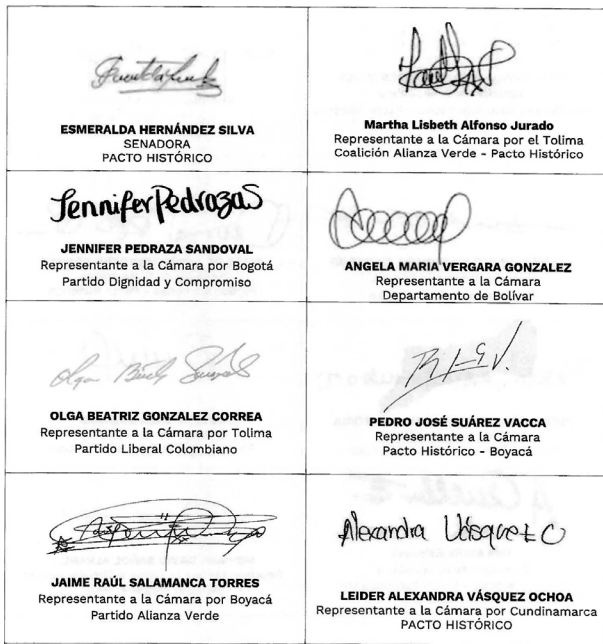 ESMERALDA HERNÁNDEZ SILVA
SENADORA
PACTO HISTÓRICO
Martha Lisbeth Alfonso Jurado
Representante a la Cámara por el Tolima
Coalición Alianza Verde - Pacto Histórico
JenniferPedrazaS
JENNIFER PEDRAZA SANDOVAL
Representante a la Cámara por Bogotá
Partido Dignidad y Compromiso
ANGELA MARIA VERGARA GONZALEZ
Representante a la Cámara
Departamento de Bolívar
OLGA BEATRIZ GONZALEZ CORREA
Representante a la Cámara por Tolima
Partido Liberal Colombiano
PEDRO JOSÉ SUÁREZ VACCA
Representante a la Cámara
Pacto Histórico - Boyacá
JAIME RAÚL SALAMANCA TORRES
Representante a la Cámara por Boyacá
Partido Alianza Verde
Alexandra Vásquez O
LEIDER ALEXANDRA VÁSQUEZ OCHOA
Representante a la Cámara por Cundinamarca
PACTO HISTÓRICO